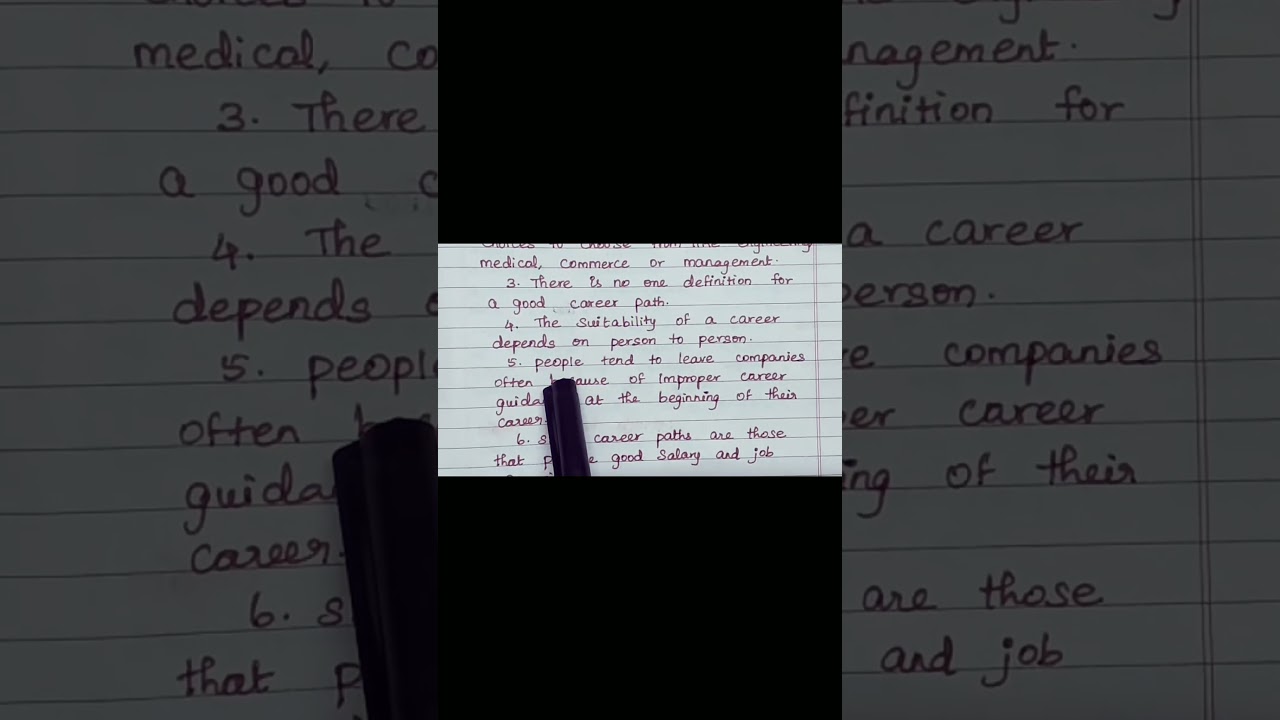 choices to choose from like engineering
medical, commerce or management.
3. There is no one definition for
a good career path.
4. The suitability of a career
depends on person to person.
5. people tend to leave companies
often of Improper career
at the beginning of their
career.
6. career paths are those
that good salary and job